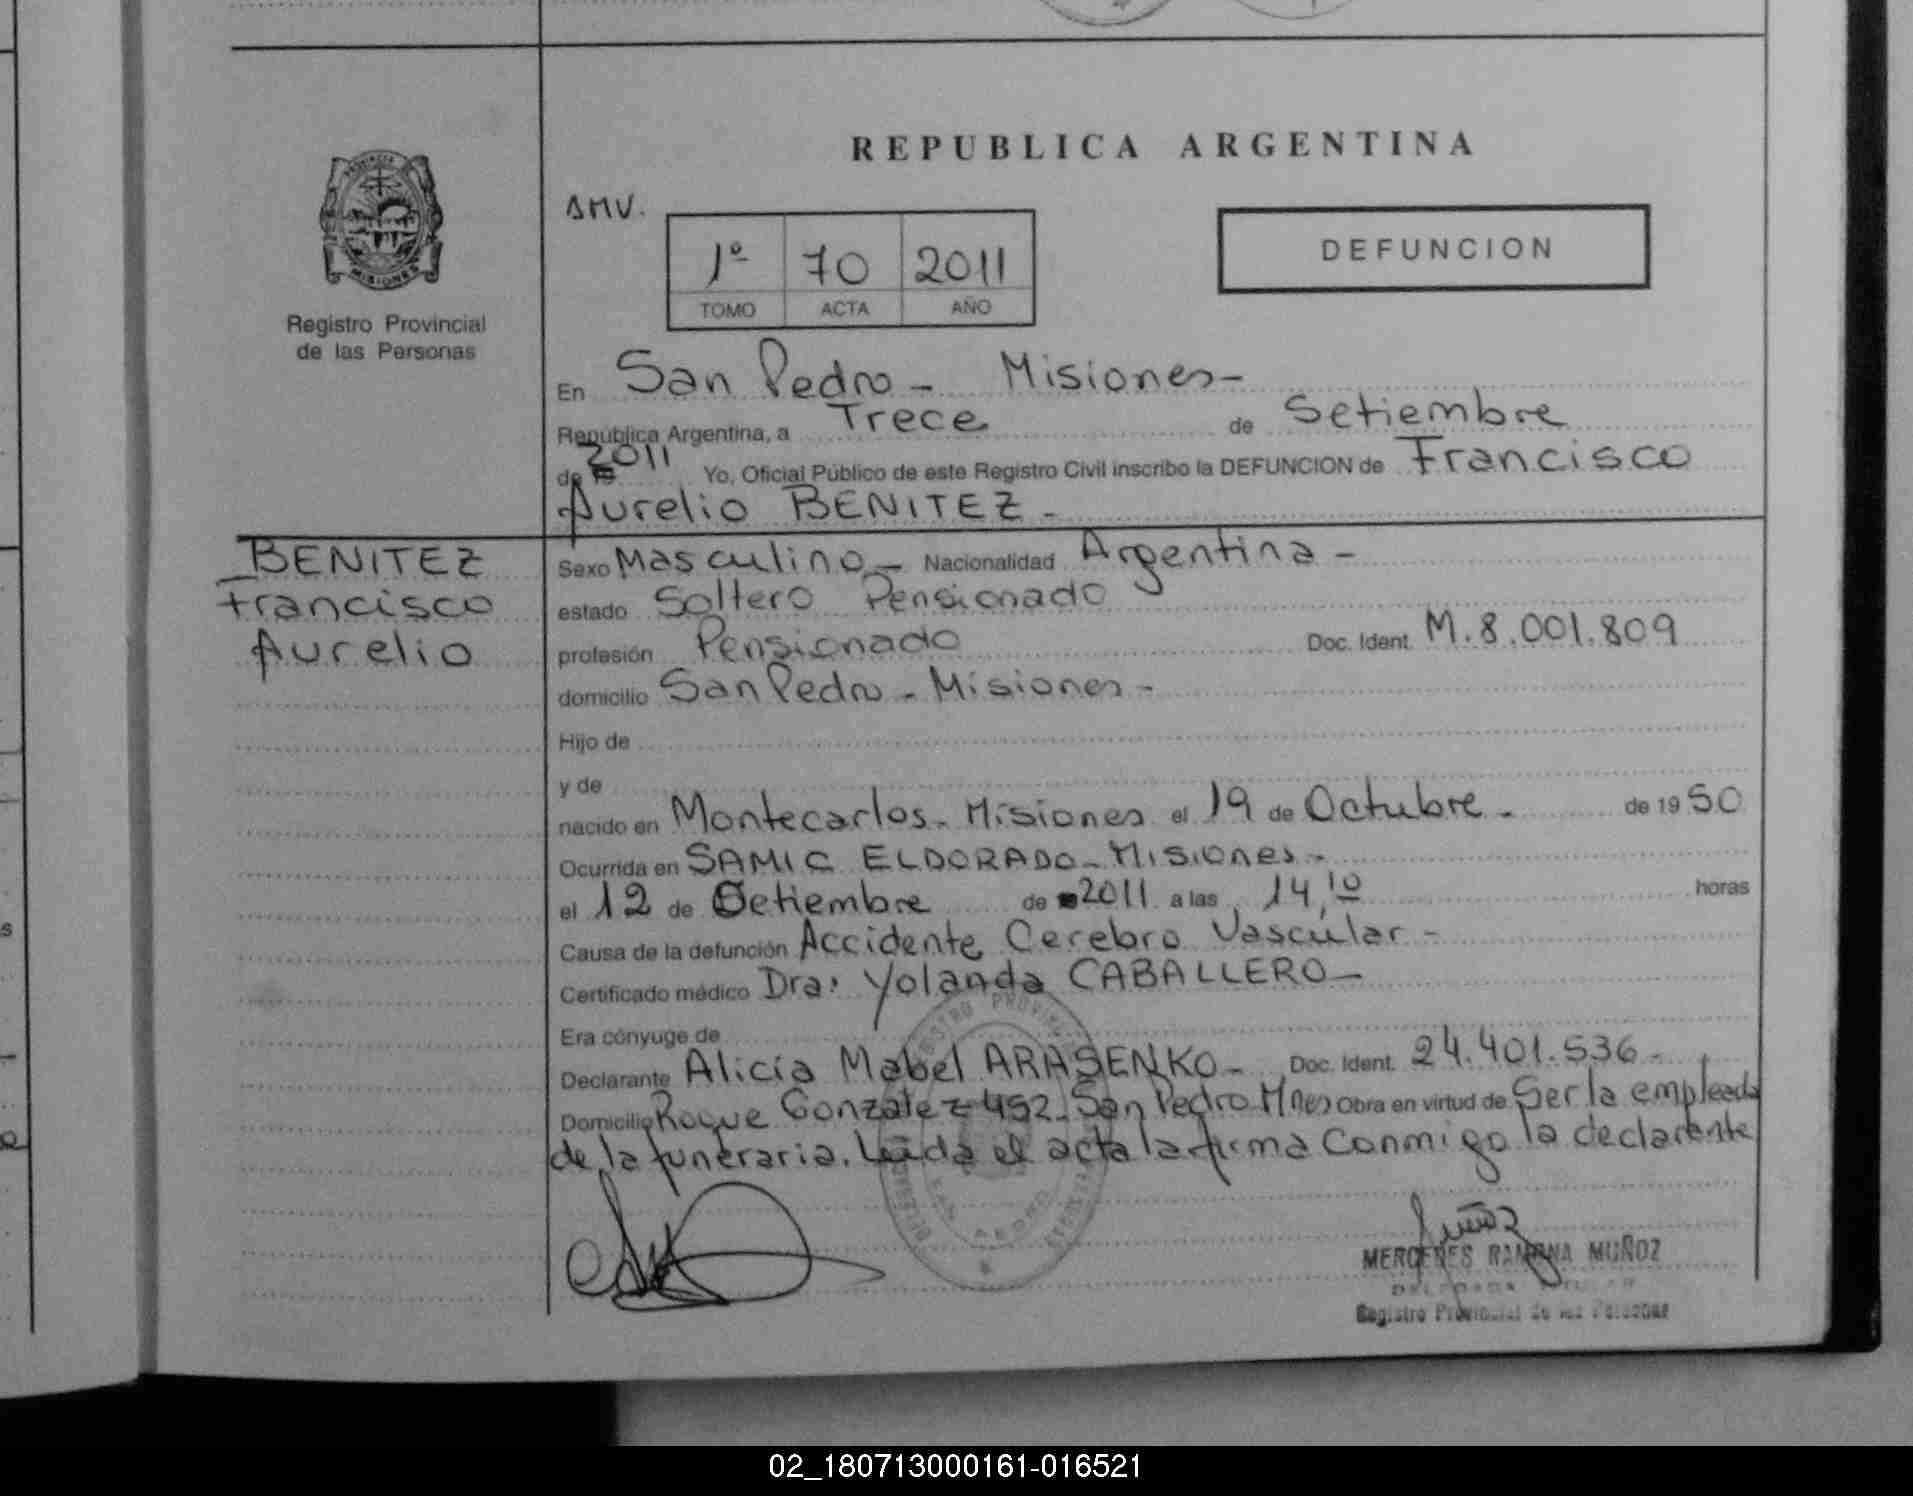 REPUBLICA ARGENTINA
PROVINCIA
MISIONES
Registro Provincial
de las Personas
AMV.
1º 70 2011
TOMO ACTA AÑO
DEFUNCION
En San Pedro - Misiones -
República Argentina, a Trece de Setiembre
de 2011 Yo, Oficial Público de este Registro Civil inscribo la DEFUNCION de Francisco
Aurelio BENITEZ -
BENITEZ
Francisco
Aurelio
Sexo Masculino - Nacionalidad Argentina -
estado Soltero Pensionado
profesión Pensionado Doc. Ident. M. 8.001.809
domicilio San Pedro - Misiones -
Hijo de
y de
nacido en Montecarlos - Misiones el 19 de Octubre - de 1950
Ocurrida en SAMIC ELDORADO - Misiones -
el 12 de Setiembre de 2011 a las 14,10 horas
Causa de la defunción Accidente Cerebro Vascular -
Certificado médico Dra: Yolanda CABALLERO -
Era cónyuge de
Declarante Alicia Mabel ARASENKO - Doc. Ident. 24.401.536 -
Domicilio Roque Gonzalez 452 - San Pedro Mnes Obra en virtud de Ser la empleada
de la funeraria. Leída el acta la firma conmigo la declarante
MERCEDES RAMONA MUÑOZ
DELEGADA TITULAR
Registro Provincial de las Personas
02_180713000161-016521